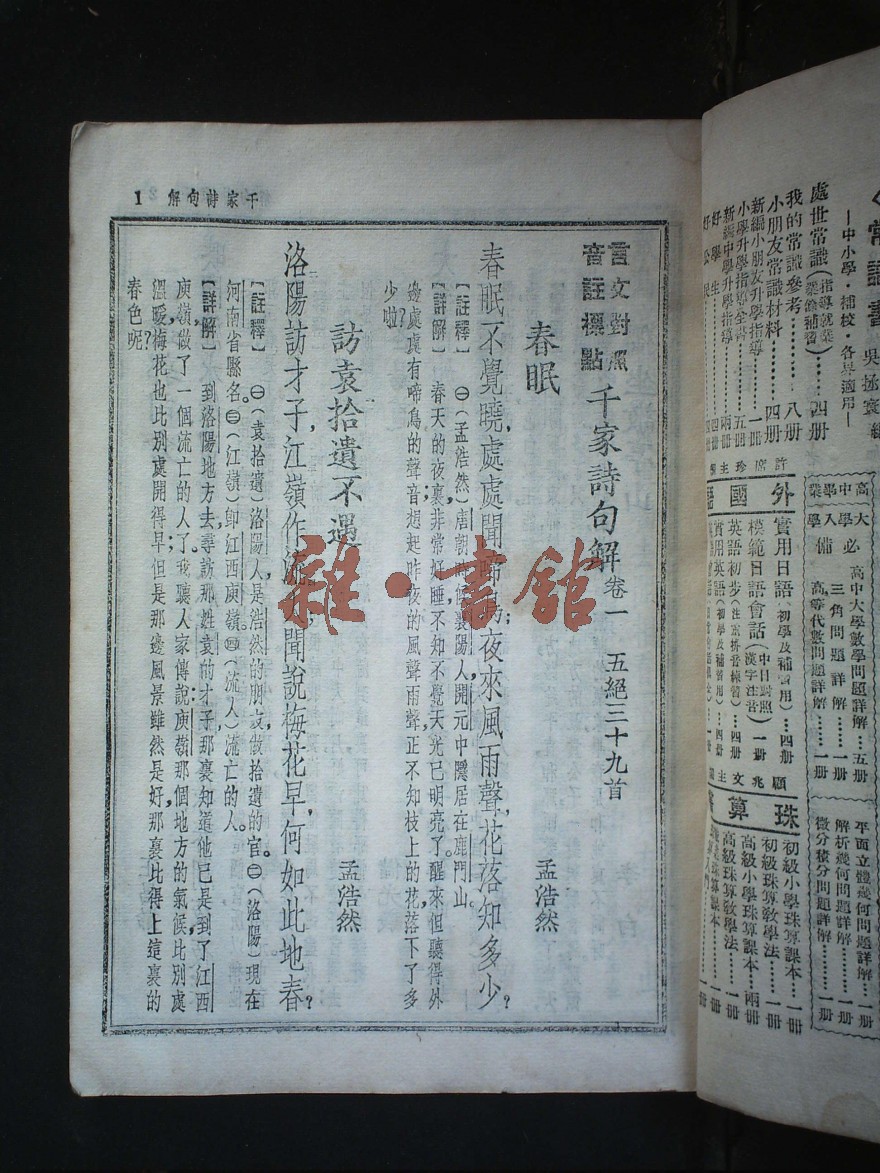 常識書
吳拯寰編
—中小學·補校·各界適用—
處世常識(指導就業課餘補習)……四册
我的常識參考……八册
小朋友常識材料……四册
新編小朋友升學指導……一册
小學升學指導全書……五册
新編中學升學指導……兩册
好學生……四册
好公民
外國語
實用日語(初學及補習用)…四册
模範日語會話(中日對照漢字注音)一册
英語初步(注意拼音練習)…四册
實用英語(初學及補習用)…四册
珠算
初級小學珠算課本…一册
初級珠算教學法…一册
高級小學珠算課本…兩册
高級珠算教學法…一册
高中畢業
大學入學
必備
高中大學數學問題詳解…五册
三角問題詳解…一册
高等代數問題詳解……一册
平面立體幾何問題詳解…一册
解析幾何問題詳解……一册
微分積分問題詳解……一册
千家詩句解 1
言文對照
音註標點
千家詩句解 卷一 五絕三十九首
春眠 孟浩然
春眠不覺曉,處處聞啼鳥;夜來風雨聲,花落知多少?
【註釋】㊀(孟浩然)唐朝時候襄陽人,開元中隱居在鹿門山。
【詳解】春天的夜裏,非常好睡,不知不覺,天光已明亮了。醒來但聽得外
邊處處有啼鳥的聲音,想起昨夜的風聲雨聲,正不知枝上的花,落下了多
少啦?
訪袁拾遺不遇 孟浩然
洛陽訪才子,江嶺作流人;聞說梅花早,何如此地春?
【註釋】㊀(袁拾遺)洛陽人,是浩然的朋友,做拾遺的官。㊁(洛陽)現在
河南省縣名。㊂(江嶺)卽江西庾嶺。㊃(流人)流亡的人。
【詳解】到洛陽地方去,尋訪那姓袁的才子,那裏知道他已是到了江西
庾嶺,做了一個流亡的人了;我聽人家傳說:庾嶺那個地方的氣候,比別處
溫暖,梅花也比別處開得早;但是那邊風景雖然是好,那裏比得上這裏的
春色呢?
雜·書館